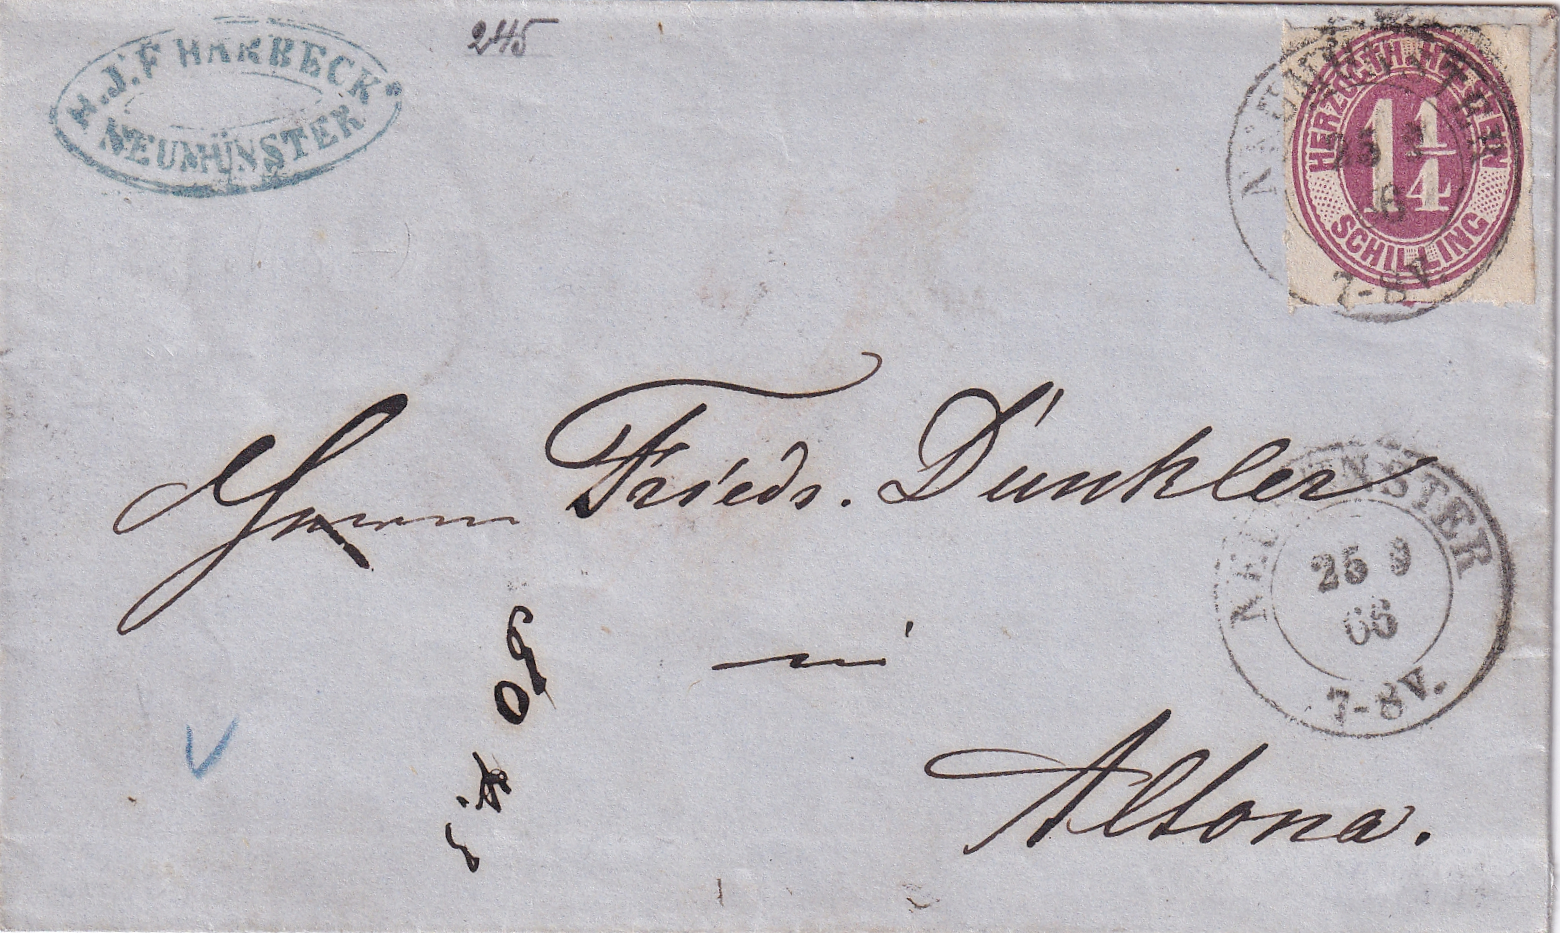 H.J.F HARBECK
NEUMÜNSTER
245
HERZOGTH. HOLSTEIN
1 1/4
SCHILLING
NEUMÜNSTER
25 9
6
7-8 V.
Herrn Frieds. Dünkler
in
Altona.
NEUMÜNSTER
25 9
66
7-8 V.